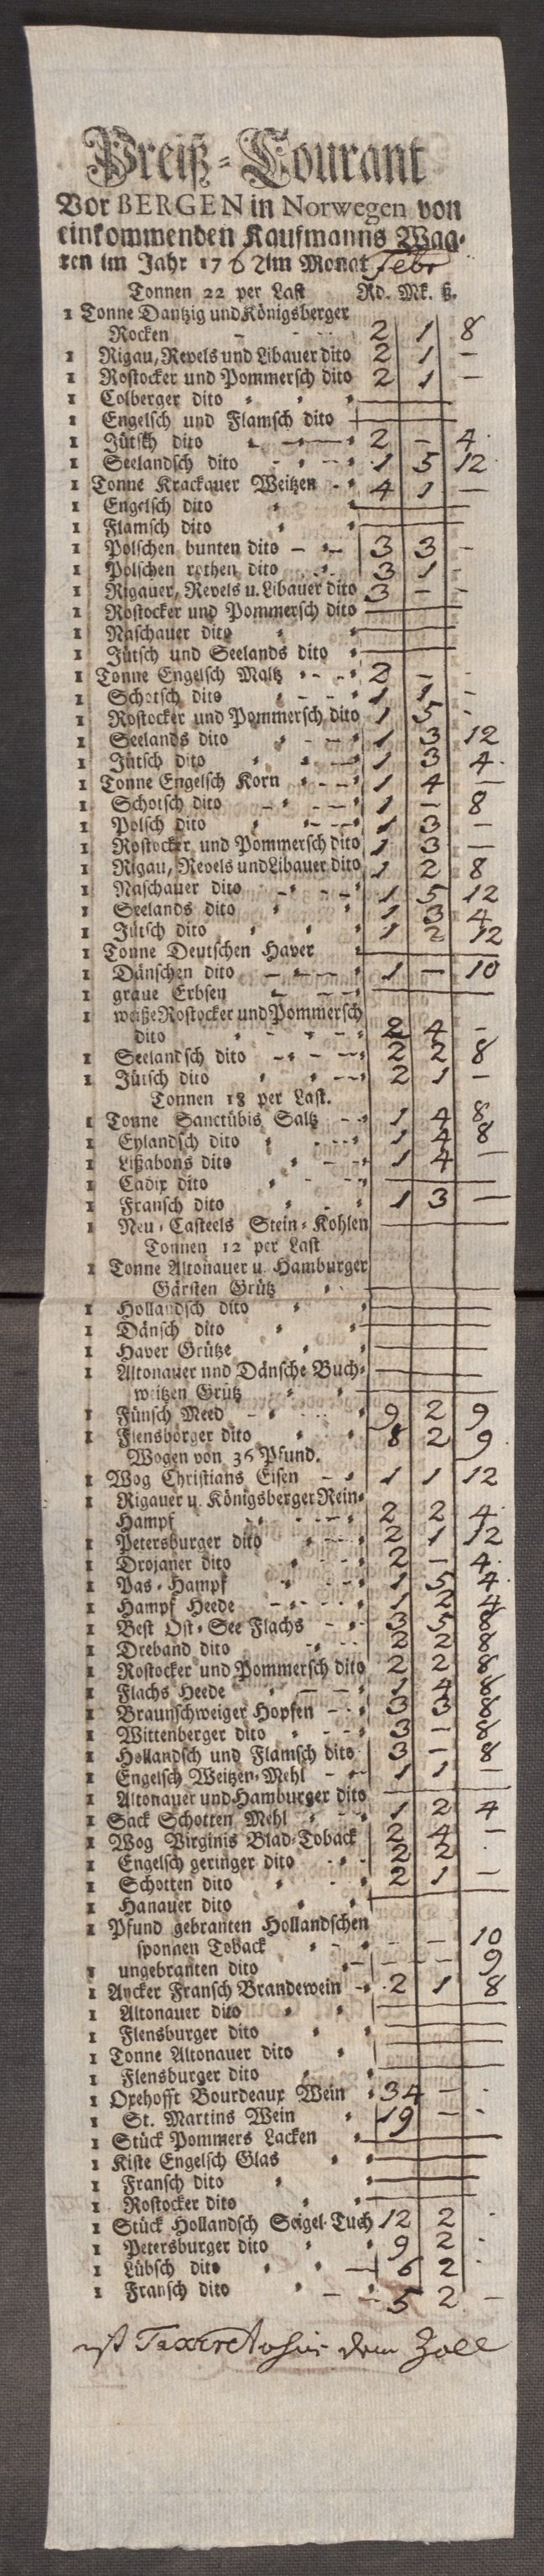 Preiß-Courant
Vor BERGEN in Norwegen von
einkommenden Kaufmanns Waa-
ren im Jahr 1762 im Monat Febr
Tonnen 22 per Last Rd. Mk. ß.
1 Tonne Dantzig und Königsberger
Rocken - 2 1 8
1 Rigau, Revels und Libauer dito 2 1 -
1 Rostocker und Pommersch dito 2 1 -
1 Colberger dito
1 Engelsch und Flamsch dito
1 Jütsch dito 2 - 4
1 Seelandsch dito 1 5 12
1 Tonne Krackauer Weitzen 4 1 -
1 Engelsch dito
1 Flamsch dito
1 Polschen bunten dito 3 3 -
1 Polschen rothen dito 3 1 -
1 Rigauer, Revels u. Libauer dito 3 - -
1 Rostocker und Pommersch dito
1 Naschauer dito
1 Jütsch und Seelands dito
1 Tonne Engelsch Maltz 2 - -
1 Schotsch dito 1 1 -
1 Rostocker und Pommersch dito 1 5 -
1 Seelands dito 1 3 12
1 Jütsch dito 1 3 4
1 Tonne Engelsch Korn 1 4 -
1 Schotsch dito 1 - 8
1 Polsch dito 1 3 -
1 Rostocker und Pommersch dito 1 3 -
1 Rigau, Revels und Libauer dito 1 2 8
1 Naschauer dito 1 5 12
1 Seelands dito 1 3 4
1 Jütsch dito 1 2 12
1 Tonne Deutschen Haver
1 Dänschen dito 1 - 10
1 graue Erbsen
1 weiße Rostocker und Pommersch
dito 2 4 -
1 Seelandsch dito 2 2 8
1 Jütsch dito 2 1 -
Tonnen 18 per Last.
1 Tonne Sanctübis Saltz 1 4 8
1 Eylandsch dito 1 4 8
1 Lißabons dito 1 4 -
1 Cadix dito
1 Fransch dito 1 3 -
1 Neu-Casteels Stein-Kohlen
Tonnen 12 per Last
1 Tonne Altonauer u. Hamburger
Gärsten Grütz
1 Hollandsch dito
1 Dänsch dito
1 Haver Grütze
1 Altonauer und Dänsche Buch-
weitzen Grütz
1 Fünsch Meed 9 2 9
1 Flensborger dito 8 2 9
Wogen von 36 Pfund.
1 Wog Christians Eisen 1 1 12
1 Rigauer u. Königsberger Rein-
Hampf 2 2 4
1 Petersburger dito 2 1 12
1 Drojaner dito 2 - 4
1 Pas-Hampf 1 5 4
1 Hampf Heede 1 2 4
1 Best Ost-See Flachs 3 5 8
1 Dreband dito 2 2 8
1 Rostocker und Pommersch dito 2 2 8
1 Flachs Heede 1 4 8
1 Braunschweiger Hopfen 3 3 8
1 Wittenberger dito 3 - 8
1 Hollandsch und Flamsch dito 3 - 8
1 Engelsch Weitzen-Mehl 1 1 -
1 Altonauer und Hamburger dito
1 Sack Schotten Mehl 1 2 4
1 Wog Virginis Blad-Toback 2 4 -
1 Engelsch geringer dito 2 2
1 Schotten dito 2 1 -
1 Hanauer dito
1 Pfund gebranten Hollandschen
sponnen Toback - - 10
1 ungebranten dito - - 9
1 Ancker Fransch Brandewein 2 1 8
1 Altonauer dito
1 Flensburger dito
1 Tonne Altonauer dito
1 Flensburger dito
1 Oxehofft Bourdeaux Wein 34 -
1 St. Martins Wein 19 -
1 Stück Pommers Lacken
1 Kiste Engelsch Glas
1 Fransch dito
1 Rostocker dito
1 Stück Hollandsch Segel-Tuch 12 2
1 Petersburger dito 9 2
1 Lübsch dito 6 2
1 Fransch dito 5 2 -
dem Zoll